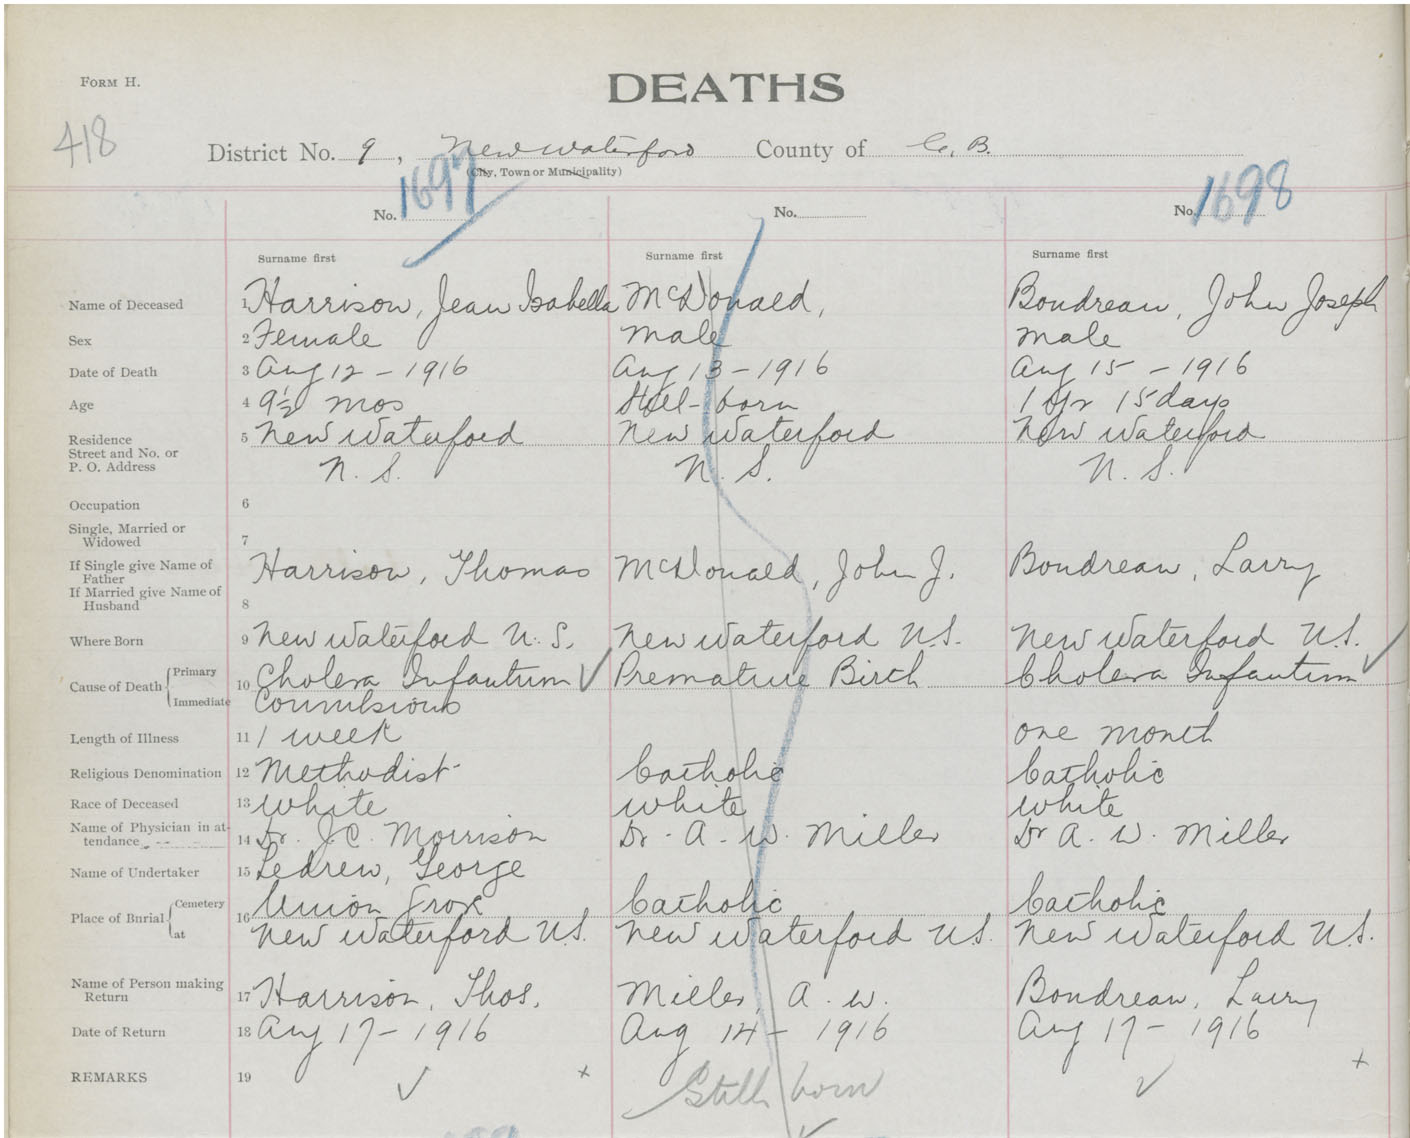 FORM H.
DEATHS
418
District No. 9, New Waterford County of C. B.
(City, Town or Municipality)
No. 1697 No. No. 1698
Surname first Surname first Surname first
Name of Deceased 1 Harrison, Jean Isabella McDonald, Boudreau, John Joseph
Sex 2 Female male male
Date of Death 3 Aug 12 - 1916 Aug 13 - 1916 Aug 15 - 1916
Age 4 9½ mos Still-born 1 yr 15 days
Residence 5 New Waterford New Waterford New Waterford
Street and No. or
P. O. Address N. S. N. S. N. S.
Occupation 6
Single, Married or
Widowed 7
If Single give Name of
Father Harrison, Thomas McDonald, John J. Boudreau, Larry
If Married give Name of
Husband 8
Where Born 9 New Waterford N. S. New Waterford N.S. New Waterford N.S.
Cause of Death Primary 10 Cholera Infantum ✓ Premature Birth Cholera Infantum ✓
Immediate Convulsions
Length of Illness 11 1 week one month
Religious Denomination 12 Methodist Catholic Catholic
Race of Deceased 13 white white white
Name of Physician in at-
tendance 14 Dr. J.C. Morrison Dr. A. W. Miller Dr A. W. Miller
Name of Undertaker 15 Ledrew, George
Place of Burial Cemetery 16 Union Grove Catholic Catholic
at New Waterford N.S. New Waterford N.S. New Waterford N.S.
Name of Person making
Return 17 Harrison, Thos. Miller, A. W. Boudreau, Larry
Date of Return 18 Aug 17 - 1916 Aug 14 - 1916 Aug 17 - 1916
REMARKS 19 ✓ x Still born ✓ x